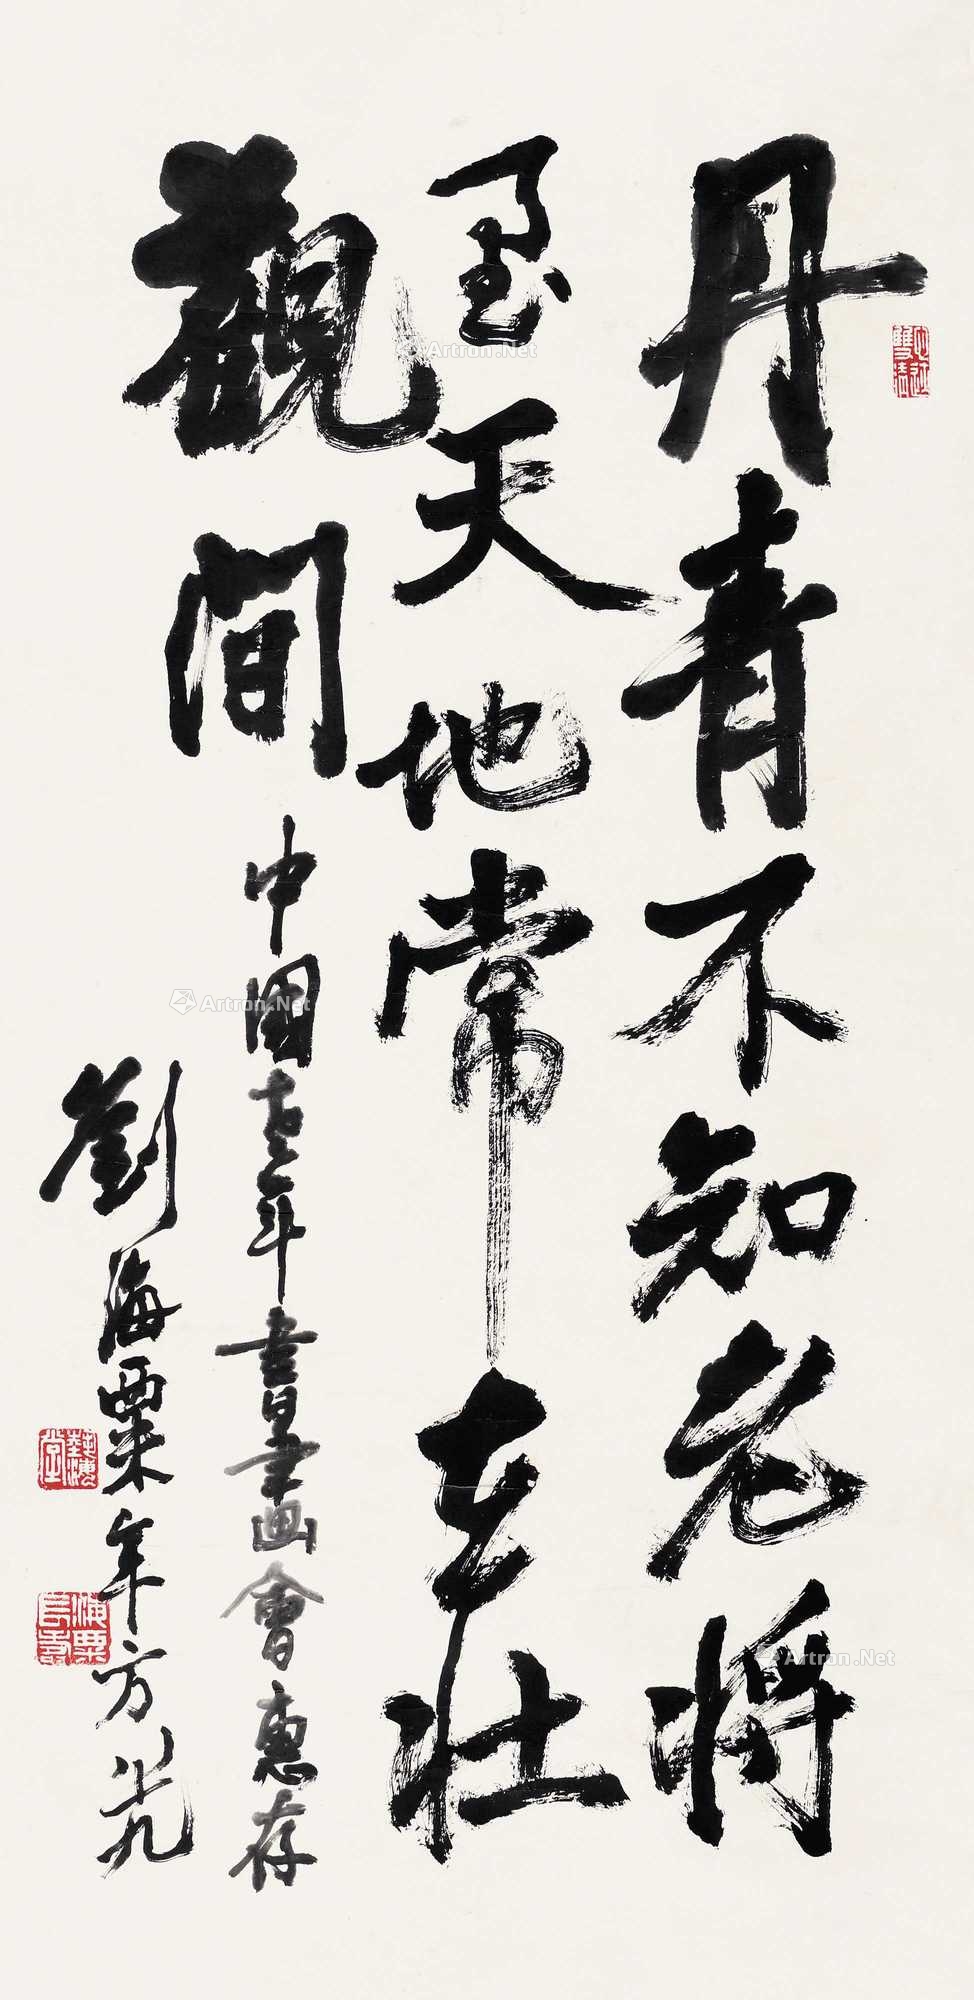 丹青不知老將
至天地常在壯
觀間
中國老年書畫會惠存
劉海粟年方八十九
心迹雙清
藝海堂
海粟長壽
Artron.Net
Artron.Net
Artron.Net